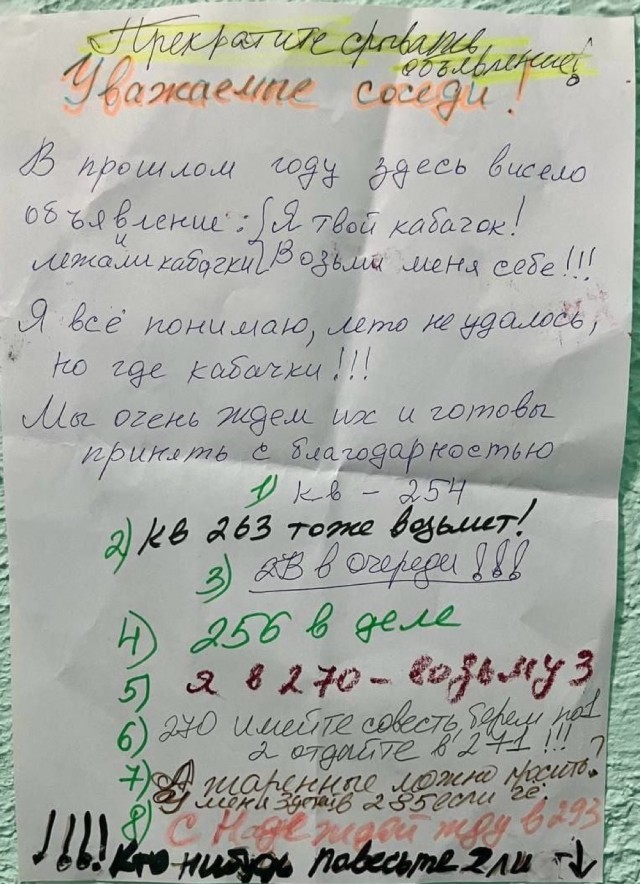 Прекратите срывать
объявление!
Уважаемые соседи!
В прошлом году здесь висело
объявление: { Я твой кабачок!
и
лежали кабачки { Возьми меня себе!!!
Я всё понимаю, лето не удалось,
но где кабачки!!!
Мы очень ждем их и готовы
принять с благодарностью
1) кв - 254
2) кв 263 тоже возьмет!
3) 2В в очереди!!!
4) 256 в деле
5) я в 270 - возьму 3
6) 270 имейте совесть берем по 1
2 отдайте в 271!!!
7) А жаренные можно просить?
У меня 3 детей в 285 если чё.
8) С Надеждой жду в 293
!!!! Кто нибудь повесьте 2 ли ↓